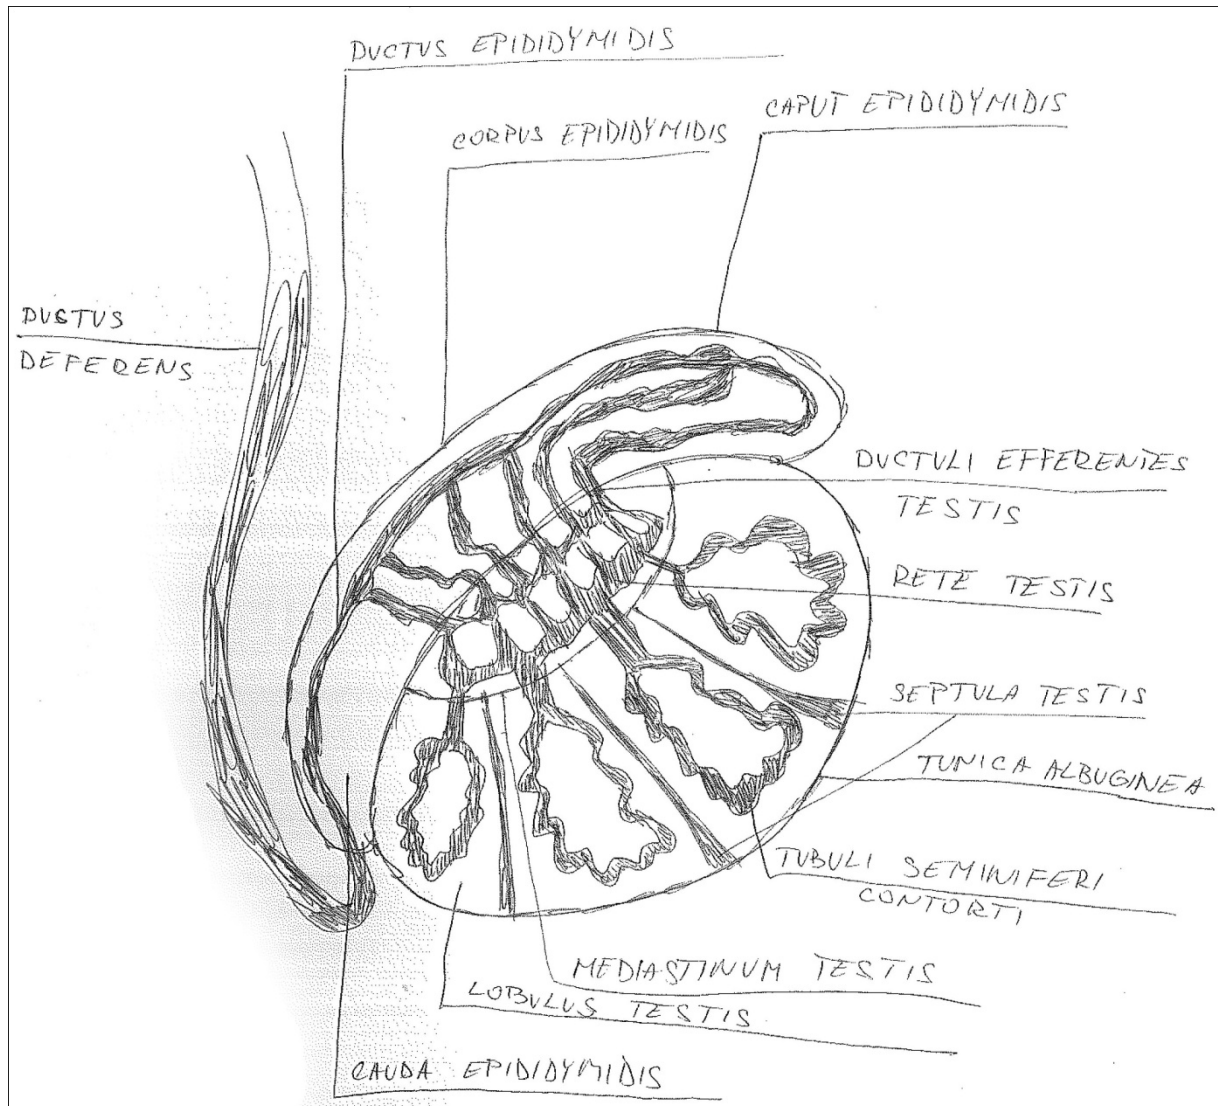 DUCTUS EPIDIDYMIDIS
CAPUT EPIDIDYMIDIS
CORPUS EPIDIDYMIDIS
DUCTUS
DEFERENS
DUCTULI EFFERENTES
TESTIS
RETE TESTIS
SEPTULA TESTIS
TUNICA ALBUGINEA
TUBULI SEMINIFERI
CONTORTI
MEDIASTINUM TESTIS
LOBULUS TESTIS
CAUDA EPIDIDYMIDIS